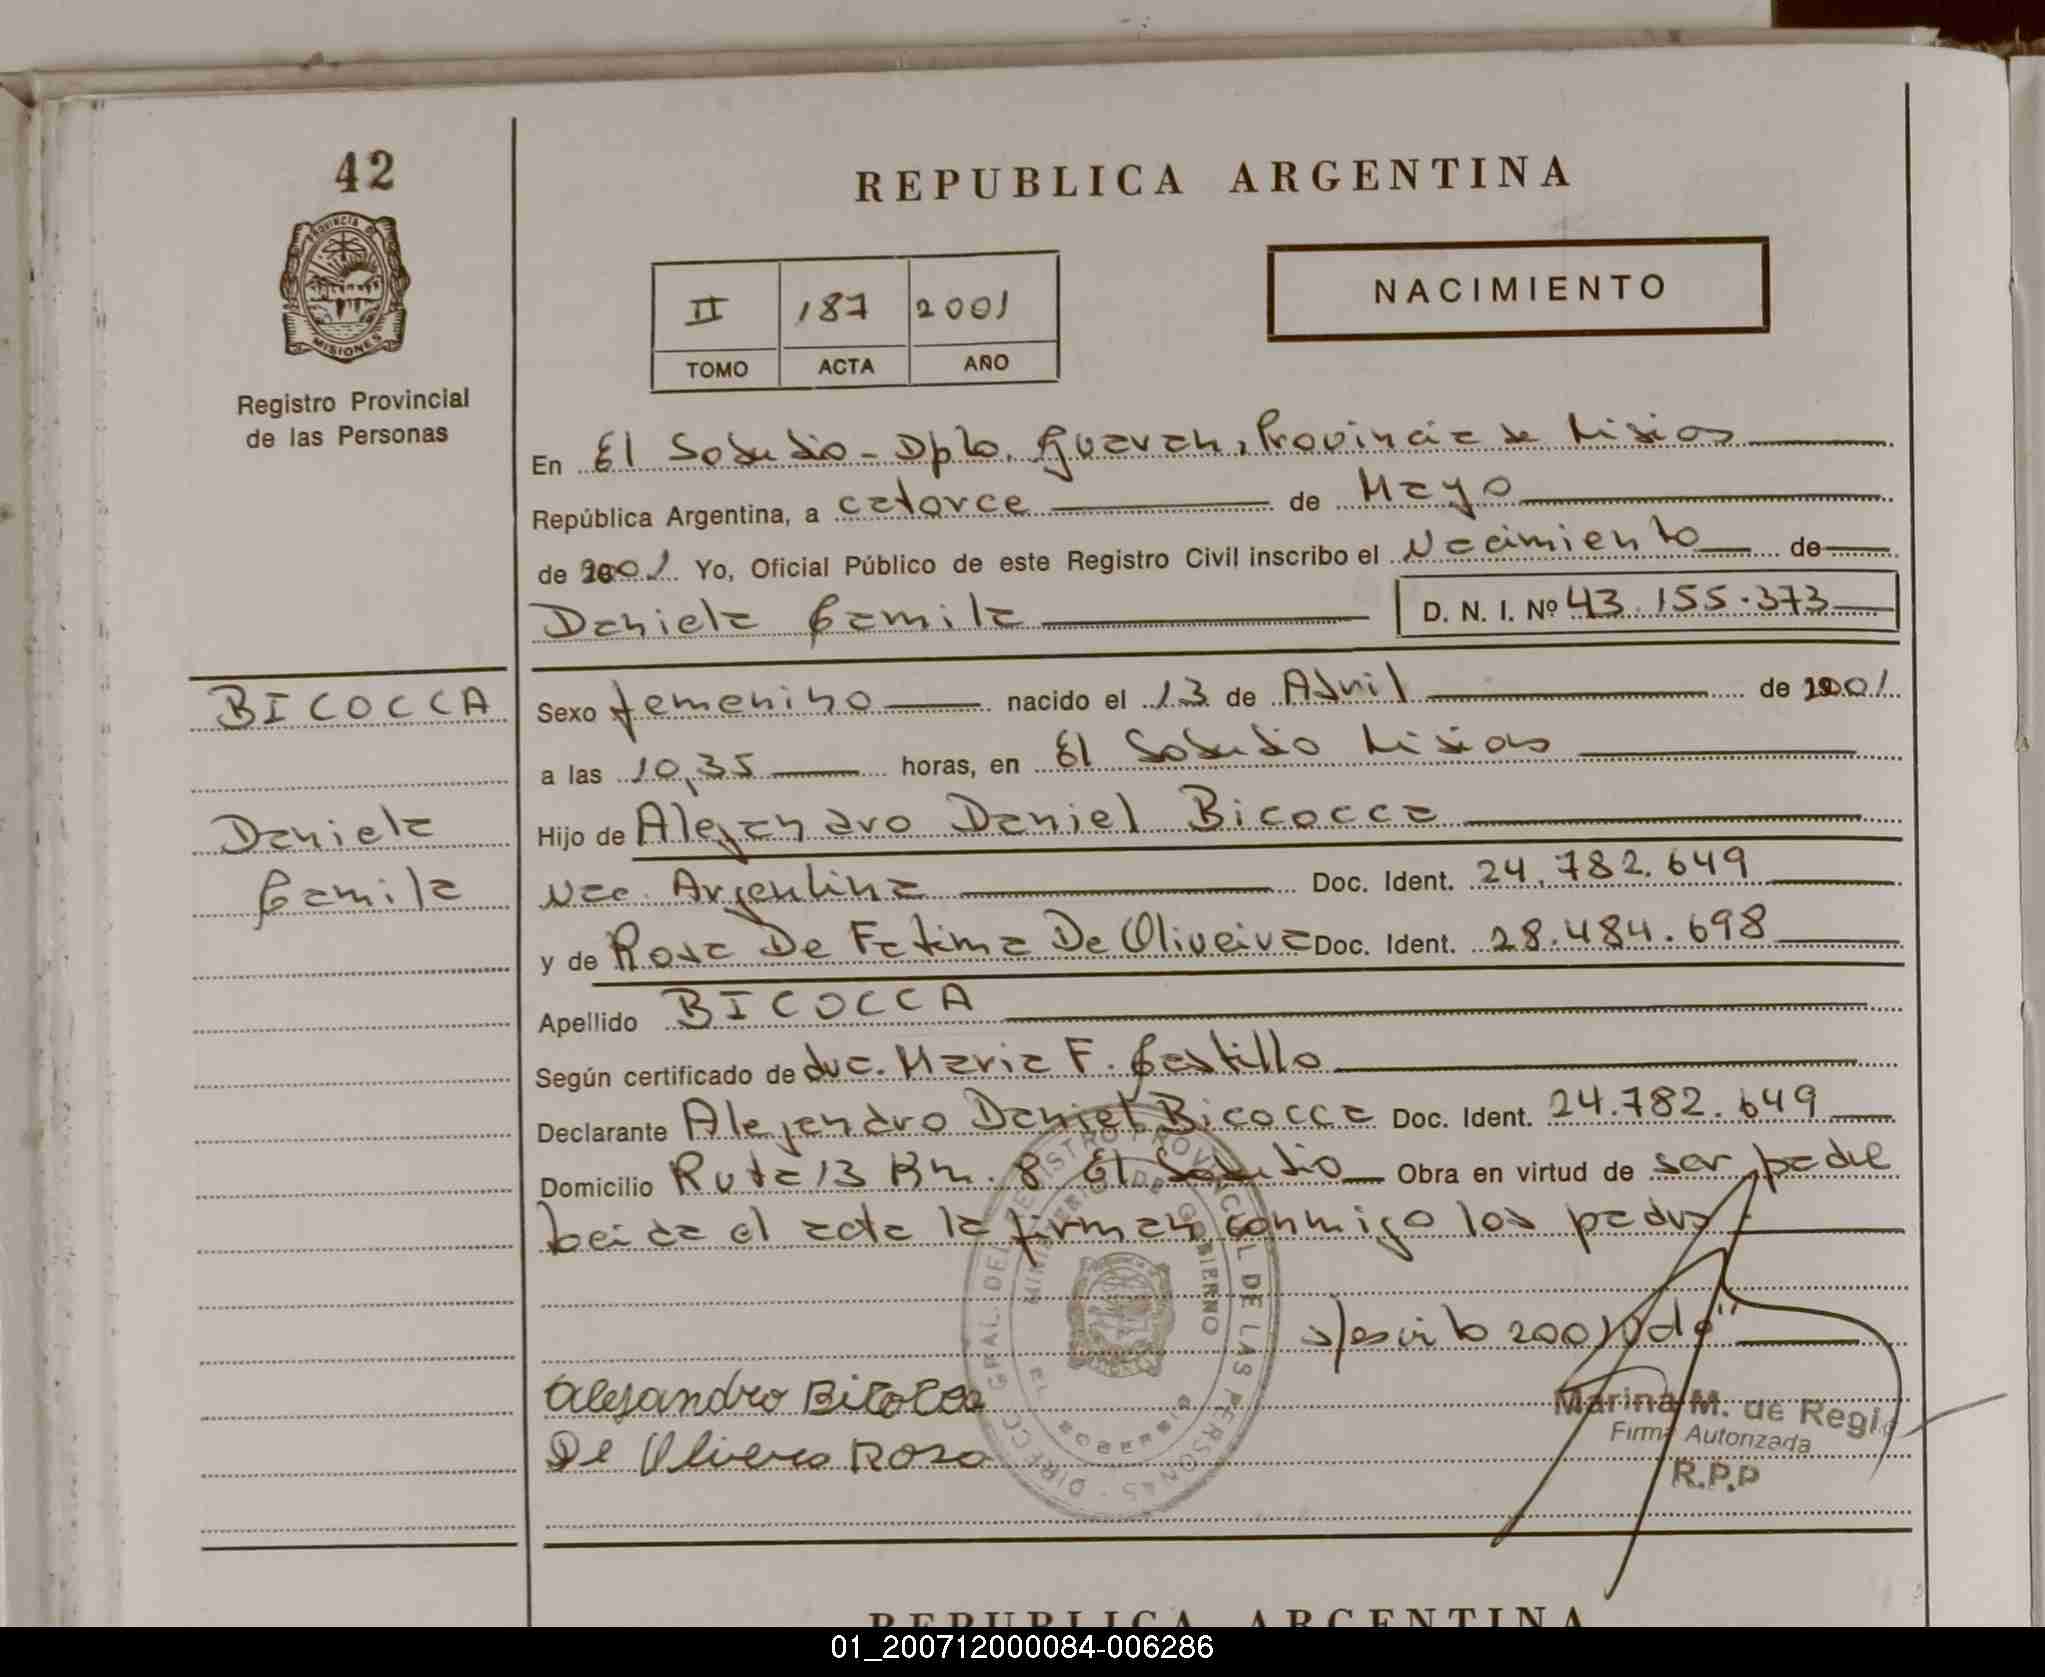 42
PROVINCIA DE
MISIONES
Registro Provincial
de las Personas
REPUBLICA ARGENTINA
II 187 2001
TOMO ACTA AÑO
NACIMIENTO
En El Soberbio - Dpto. Guarani, Provincia de Misiones
República Argentina, a catorce de Mayo
de 2001 Yo, Oficial Público de este Registro Civil inscribo el Nacimiento de
Daniela Camila D. N. I. Nº 43.155.373
BICOCCA
Daniela
Camila
Sexo femenino nacido el 13 de Abril de 2001
a las 10,35 horas, en El Soberbio Misiones
Hijo de Alejandro Daniel Bicocca
Nac. Argentina Doc. Ident. 24.782.649
y de Rosa De Fatima De Oliveira Doc. Ident. 28.484.698
Apellido BICOCCA
Según certificado de Maria F. Castillo
Declarante Alejandro Daniel Bicocca Doc. Ident. 24.782.649
Domicilio Ruta 13 Km. 8 El Soberbio Obra en virtud de ser padre
Leida el acta la firman conmigo los padres
DIRECC. GRAL. DEL REGISTRO PROVINCIAL DE LAS PERSONAS
MINISTERIO DE GOBIERNO
EL SOBERBIO
s/escrito 2001
Alejandro Bicocca
De Olivera Rosa
Marina M. de Regi
Firma Autorizada
R.P.P
REPUBLICA ARGENTINA
01_200712000084-006286